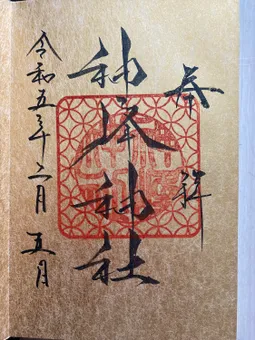 奉拝
神峰神社
令和五年二月五日